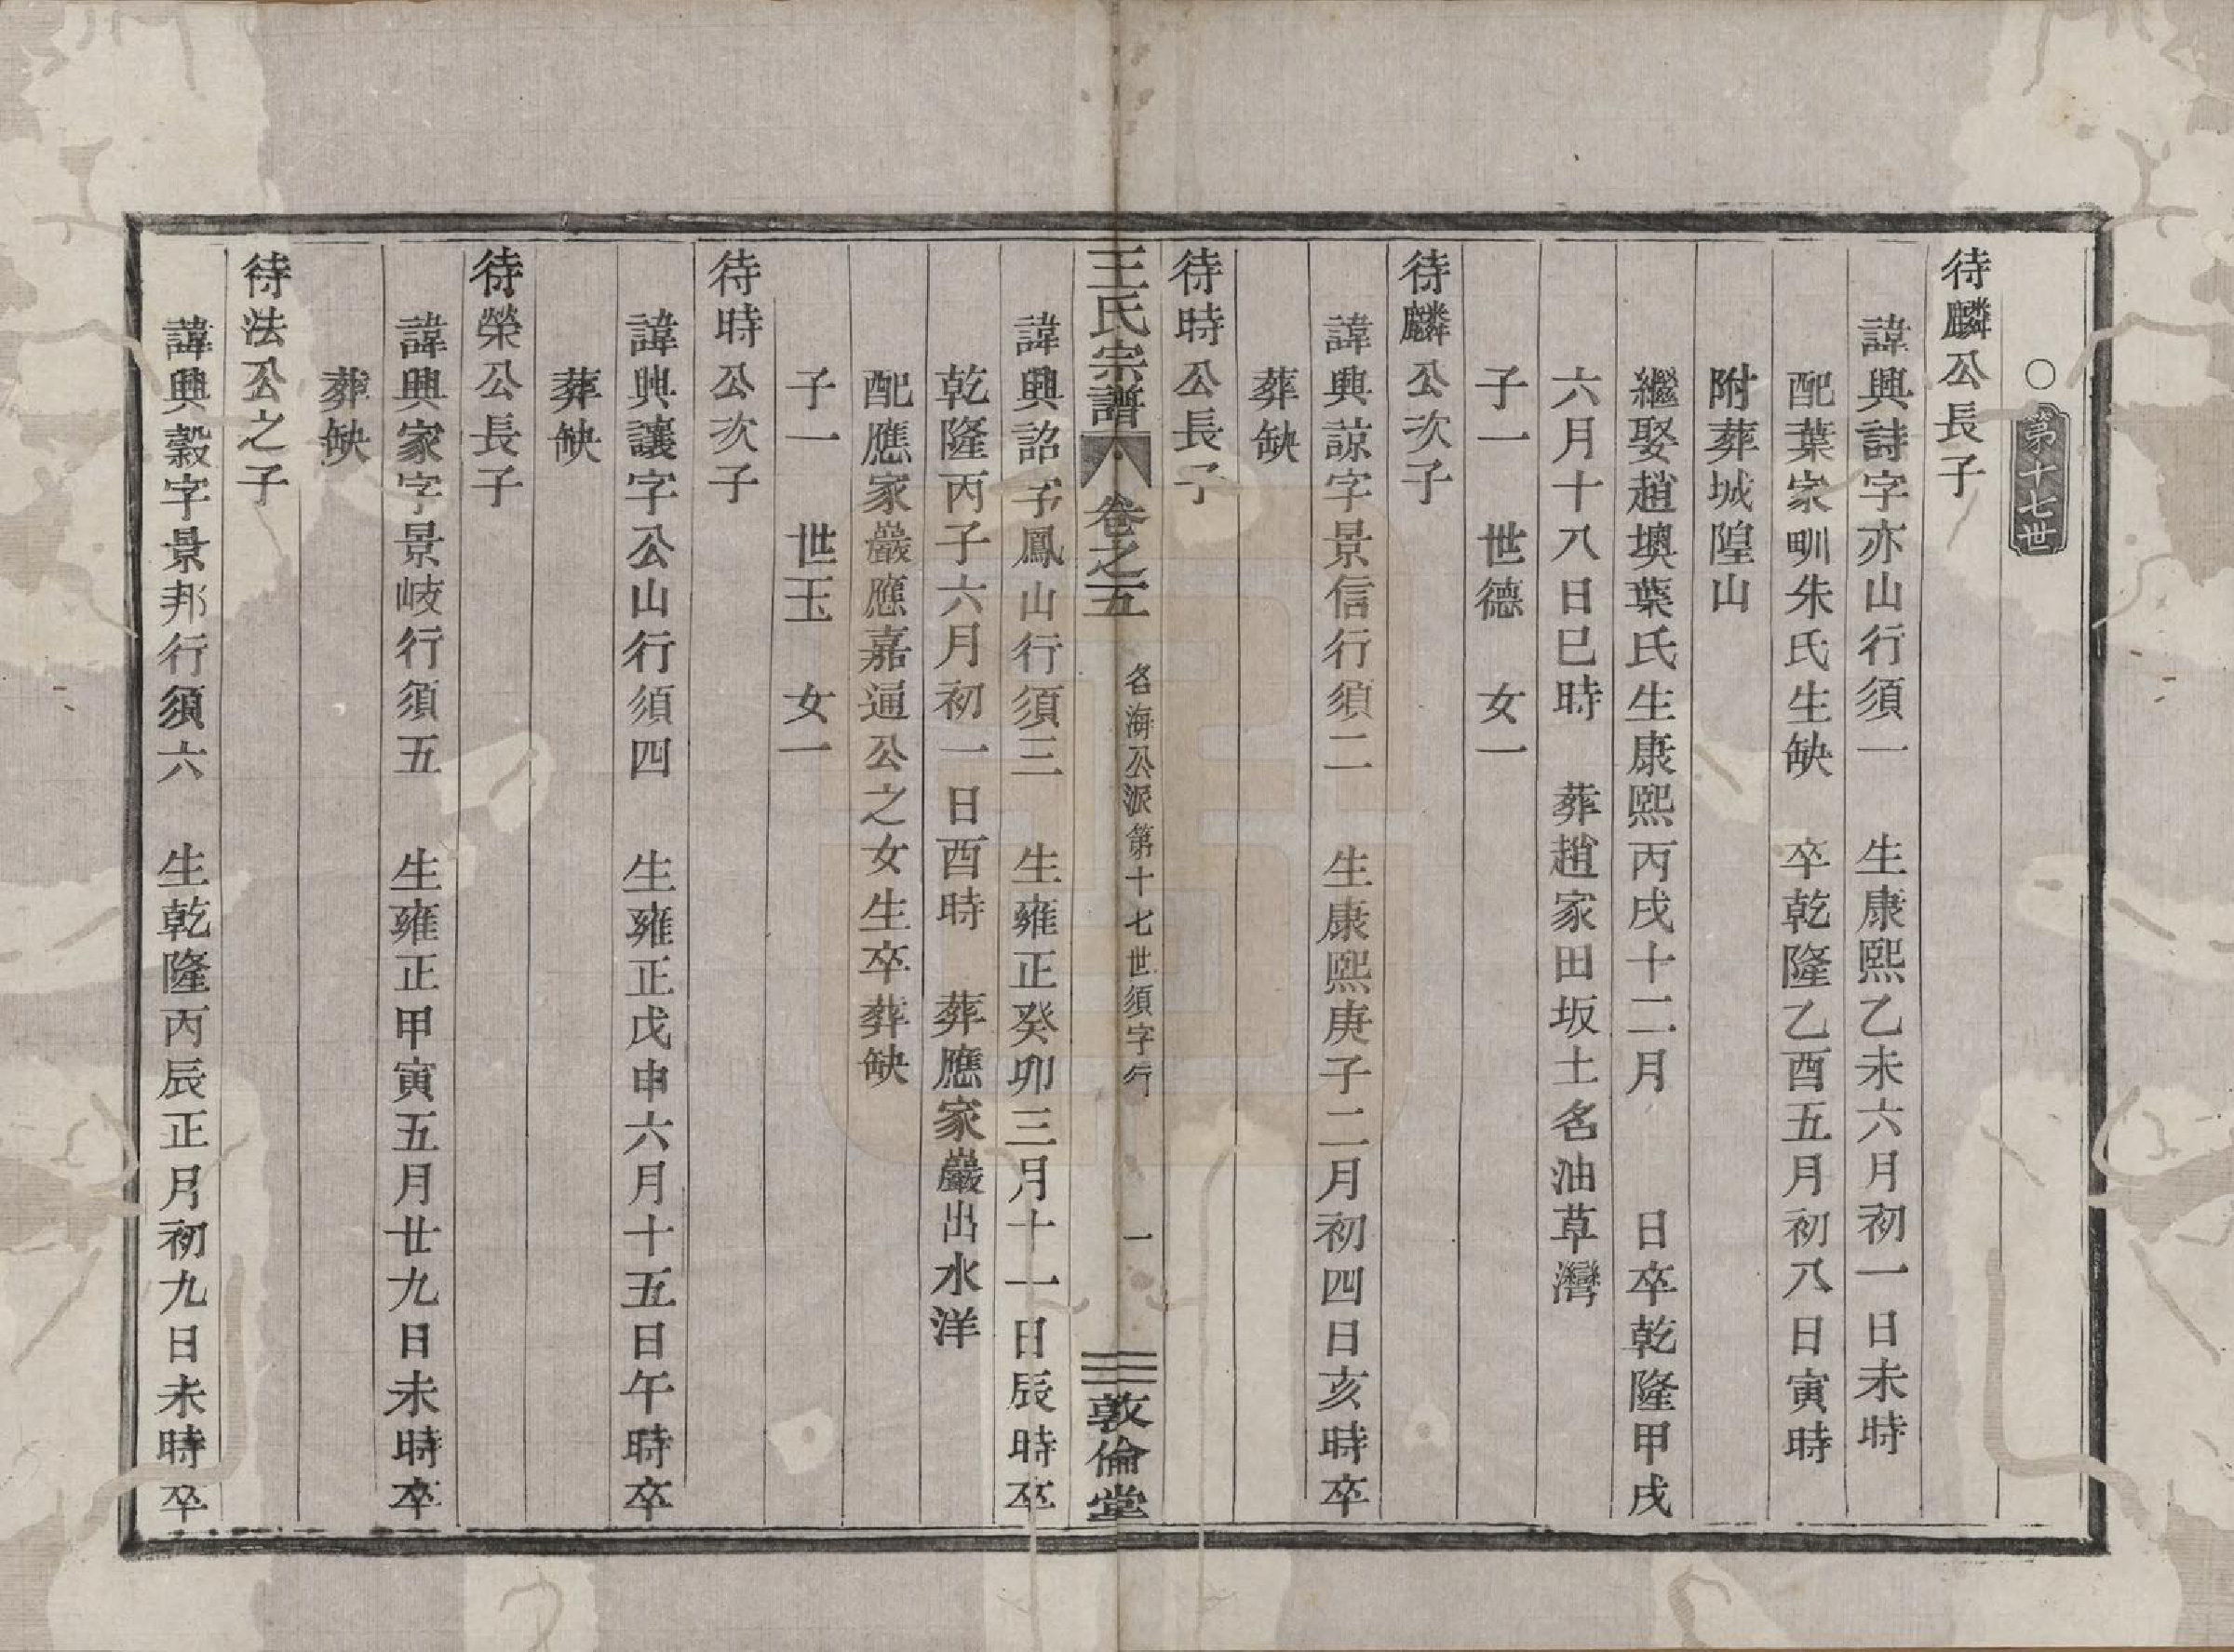 ○第十七世
待麟公長子
諱興詩字亦山行須一　生康熙乙未六月初一日未時
配葉家甽朱氏生缺　卒乾隆乙酉五月初八日寅時
附葬城隍山
繼娶趙墺葉氏生康熙丙戌十二月　　日卒乾隆甲戌
六月十八日巳時　葬趙家田坂土名油草灣
子一　世德　女一
待麟公次子
諱興諒字景信行須二　生康熙庚子二月初四日亥時卒
葬缺
待時公長子
王氏宗譜　卷之五　名海公派第十七世須字行　一　敦倫堂
諱興詔字鳳山行須三　生雍正癸卯三月十一日辰時卒
乾隆丙子六月初一日酉時　葬應家巖出水洋
配應家巖應嘉逼公之女生卒葬缺
子一　世玉　女一
待時公次子
諱興讓字公山行須四　生雍正戊申六月十五日午時卒
葬缺
待榮公長子
諱興家字景岐行須五　生雍正甲寅五月廿九日未時卒
葬缺
待法公之子
諱興穀字景邦行須六　生乾隆丙辰正月初九日未時卒